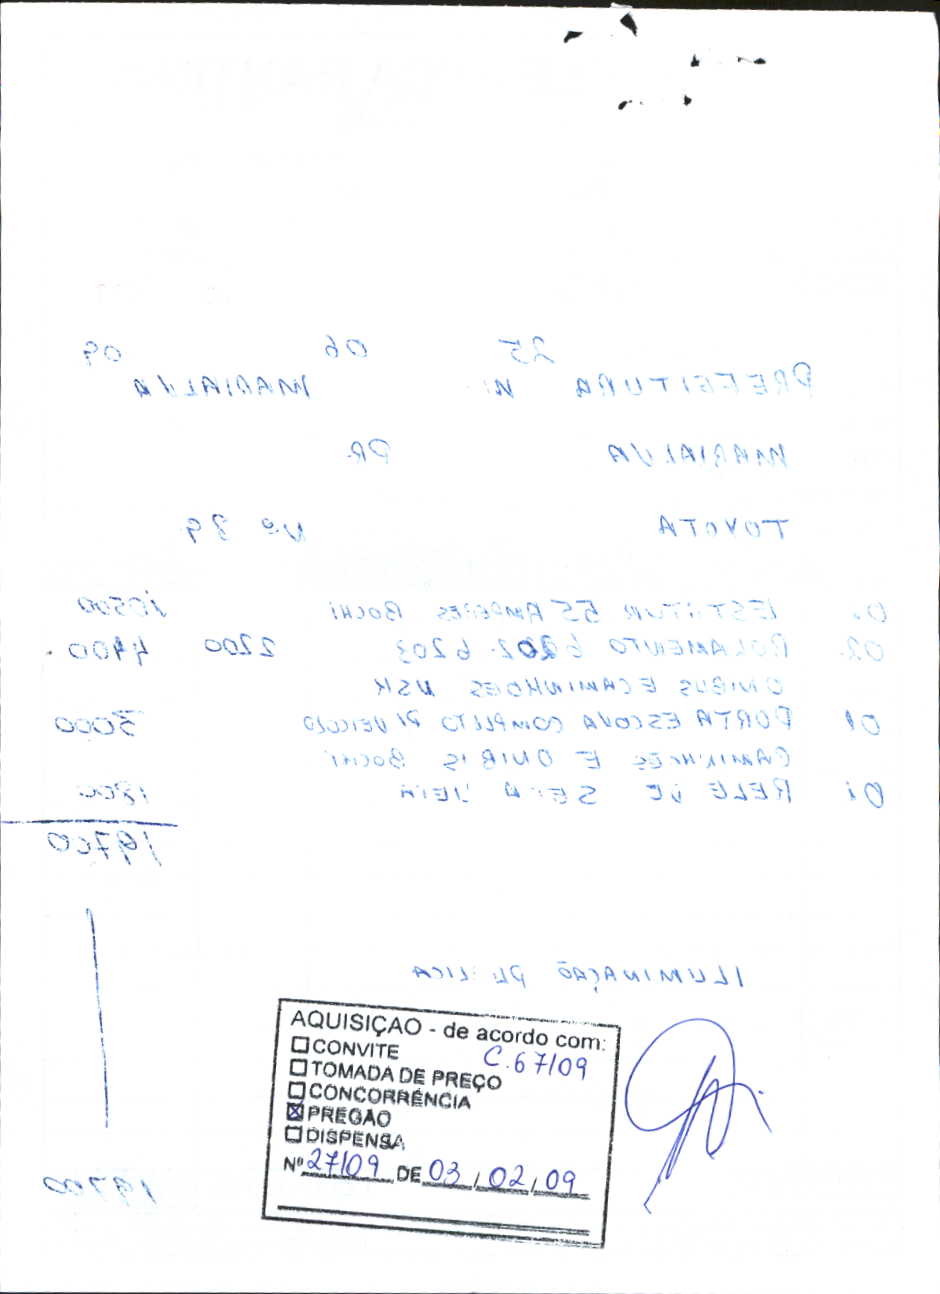 25 06 09
PREFEITURA M. MARIALVA
MARIALVA PR.
TOYOTA Nº 39
01 ESTATUR 55 AMPERES BOCHI 10500
02 ROLAMENTO 6202.6203 2200 4400
ONIBUS E CAMINHOES NSK
01 PORTA ESCOVA COMPLETO P/ VEICULO 3000
CAMINHÕES E ONIBIS BOCHI
01 RELE DE 1800
19700
ILUMINAÇÃO PUBLICA
AQUISIÇAO - de acordo com:
CONVITE C.67/09
TOMADA DE PREÇO
CONCORRÊNCIA
PREGAO
DISPENSA
Nº 27/09 DE 03/02/09
19700